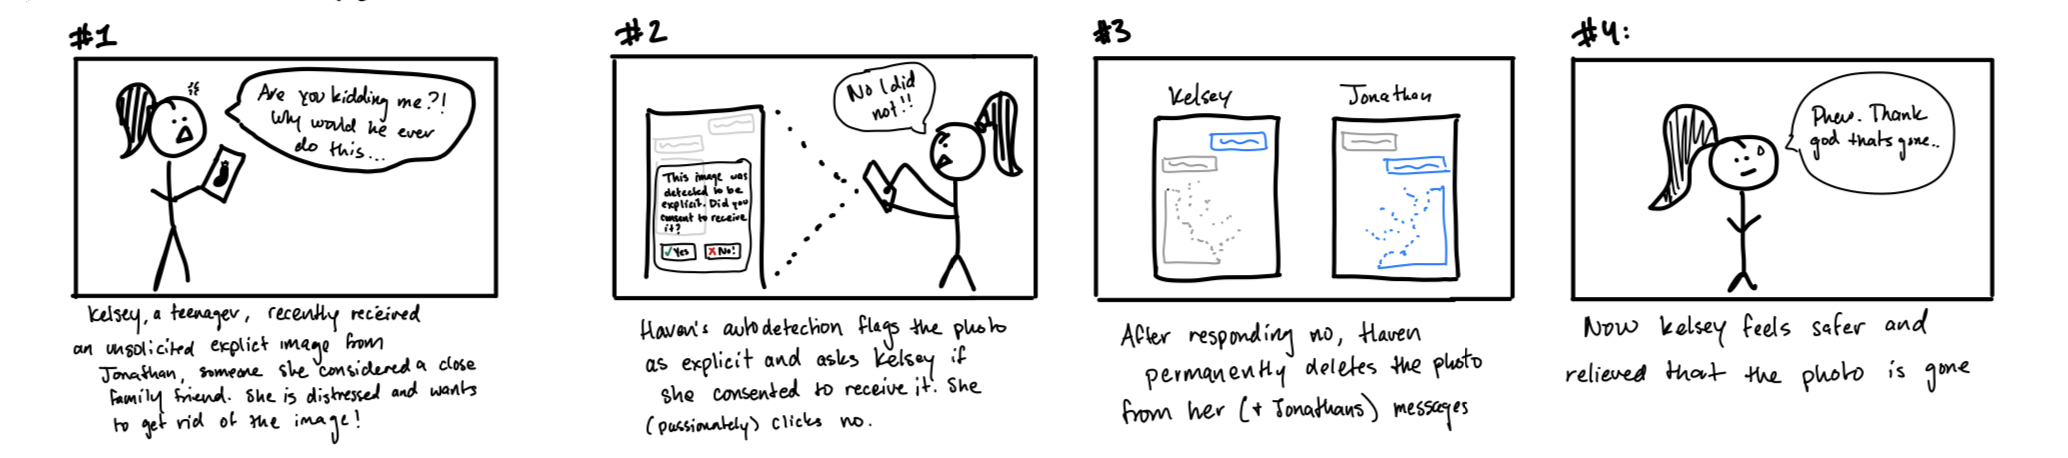 #1
Are you kidding me?!
Why would he ever
do this...
Kelsey, a teenager, recently received
an unsolicited explict image from
Jonathan, someone she considered a close
family friend. She is distressed and wants
to get rid of the image!
#2
No I did
not!!
This image was
detected to be
explicit. Did you
consent to receive
it?
✓Yes
XNo!
Haven's autodetection flags the photo
as explicit and asks Kelsey if
she consented to receive it. She
(passionately) clicks no.
#3
Kelsey
Jonathan
After responding no, Haven
permanently deletes the photo
from her (+ Jonathans) messages
#4:
Phew. Thank
god thats gone..
Now Kelsey feels safer and
relieved that the photo is gone